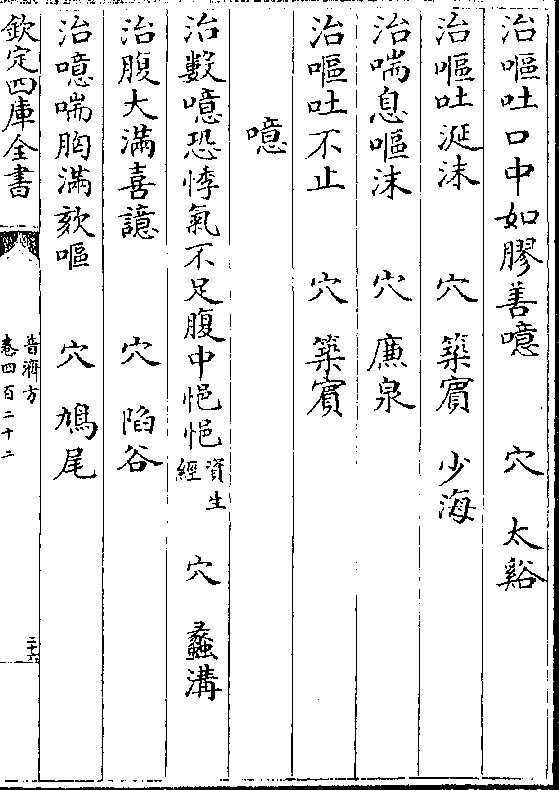 治嘔吐口中如膠善噫　穴　太谿
治嘔吐涎沫　穴　築賓　少海
治喘息嘔沫　穴　廉泉
治嘔吐不止　穴　築賓
噫
治數噫恐悸氣不足腹中悒悒資生經　穴　蠡溝
治腹大滿喜譩　穴　陷谷
治噫喘胸滿欬嘔　穴　鳩尾
欽定四庫全書
普濟方
卷四百二十二
二十六